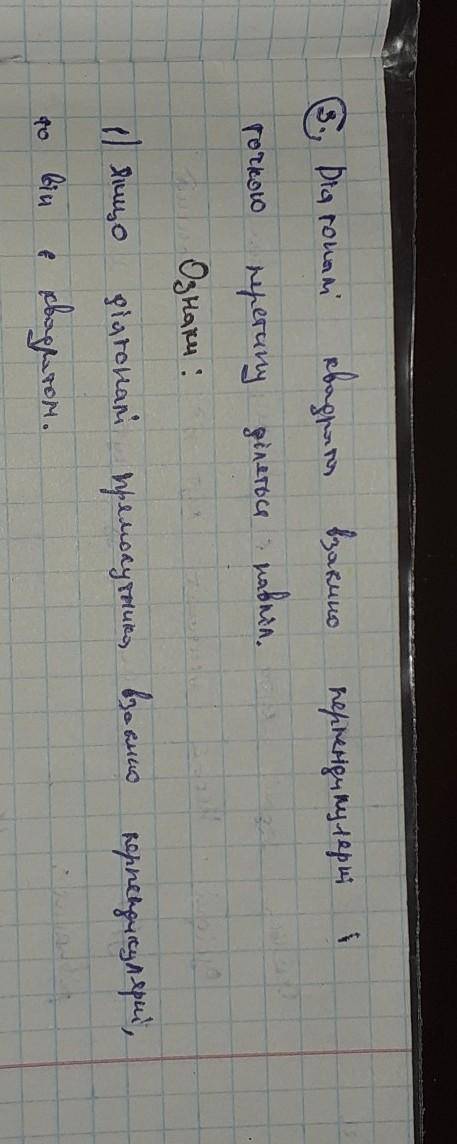 3. Діагоналі квадрата взаємно перпендикулярні і
точкою перетину діляться навпіл.
Ознаки:
1) Якщо діагоналі прямокутника взаємно перпендикулярні,
то він є квадратом.